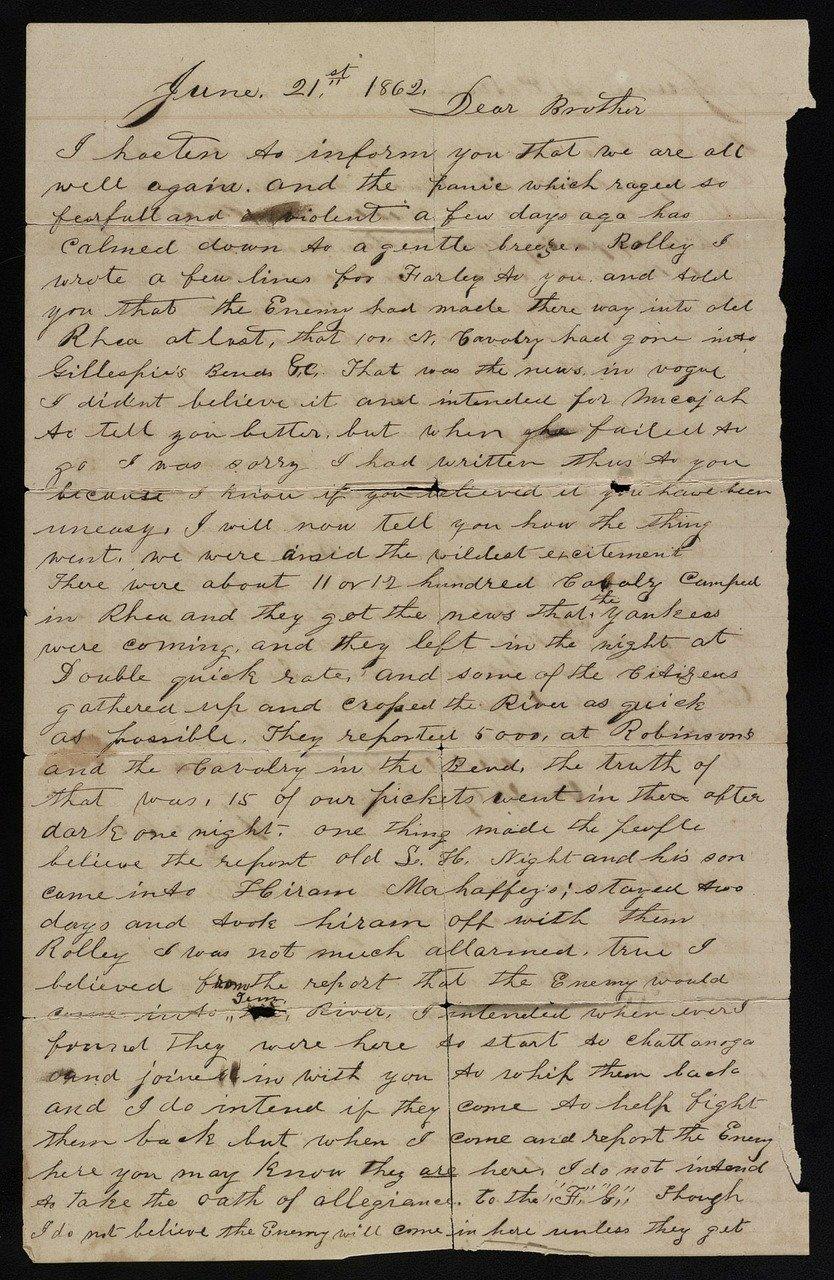 June. 21st 1862.
Dear Brother
I hasten to inform you that we are all
well again. and the panic which raged so
fearfull and violent a few days ago has
calmed down to a gentle breeze. Rolley I
wrote a few lines for Farley to you and told
you that the Enemy had made there way into old
Rhea at last, that 100. N. Cavalry had gone into
Gillespie's Bend &C. That was the news in vogue
I didnt believe it and intended for Micajah
to tell you better, but when he failed to
go I was sorry I had written thus to you
because I know if you believed it you have been
uneasy. I will now tell you how the thing
went. we were amid the wildest excitement
There were about 11 or 12 hundred Cavalry Camped
in Rhea and they got the news that the Yankees
were coming. and they left in the night at
Double quick rate, and some of the Citizens
gathered up and crossed the River as quick
as possible. They reported 5000, at Robinson's
and the Cavalry in the Bend, the truth of
that was, 15 of our pickets went in there after
dark one night. one thing made the people
believe the report old S. H. Night and his son
came into Hiram Mahaffey's; stayed two
days and took hiram off with them
Rolley I was not much allarmed. true I
believed from the report that the Enemy would
come into Tenn. River, I intended when ever I
found they were here to start to Chattanoga
and joine in with you to whip them back
and I do intend if they come to help fight
them back but when I come and report the Enemy
here you may know they are here. I do not intend
to take the oath of allegiance. to the
Though
I do not believe the Enemy will come in here unless they get